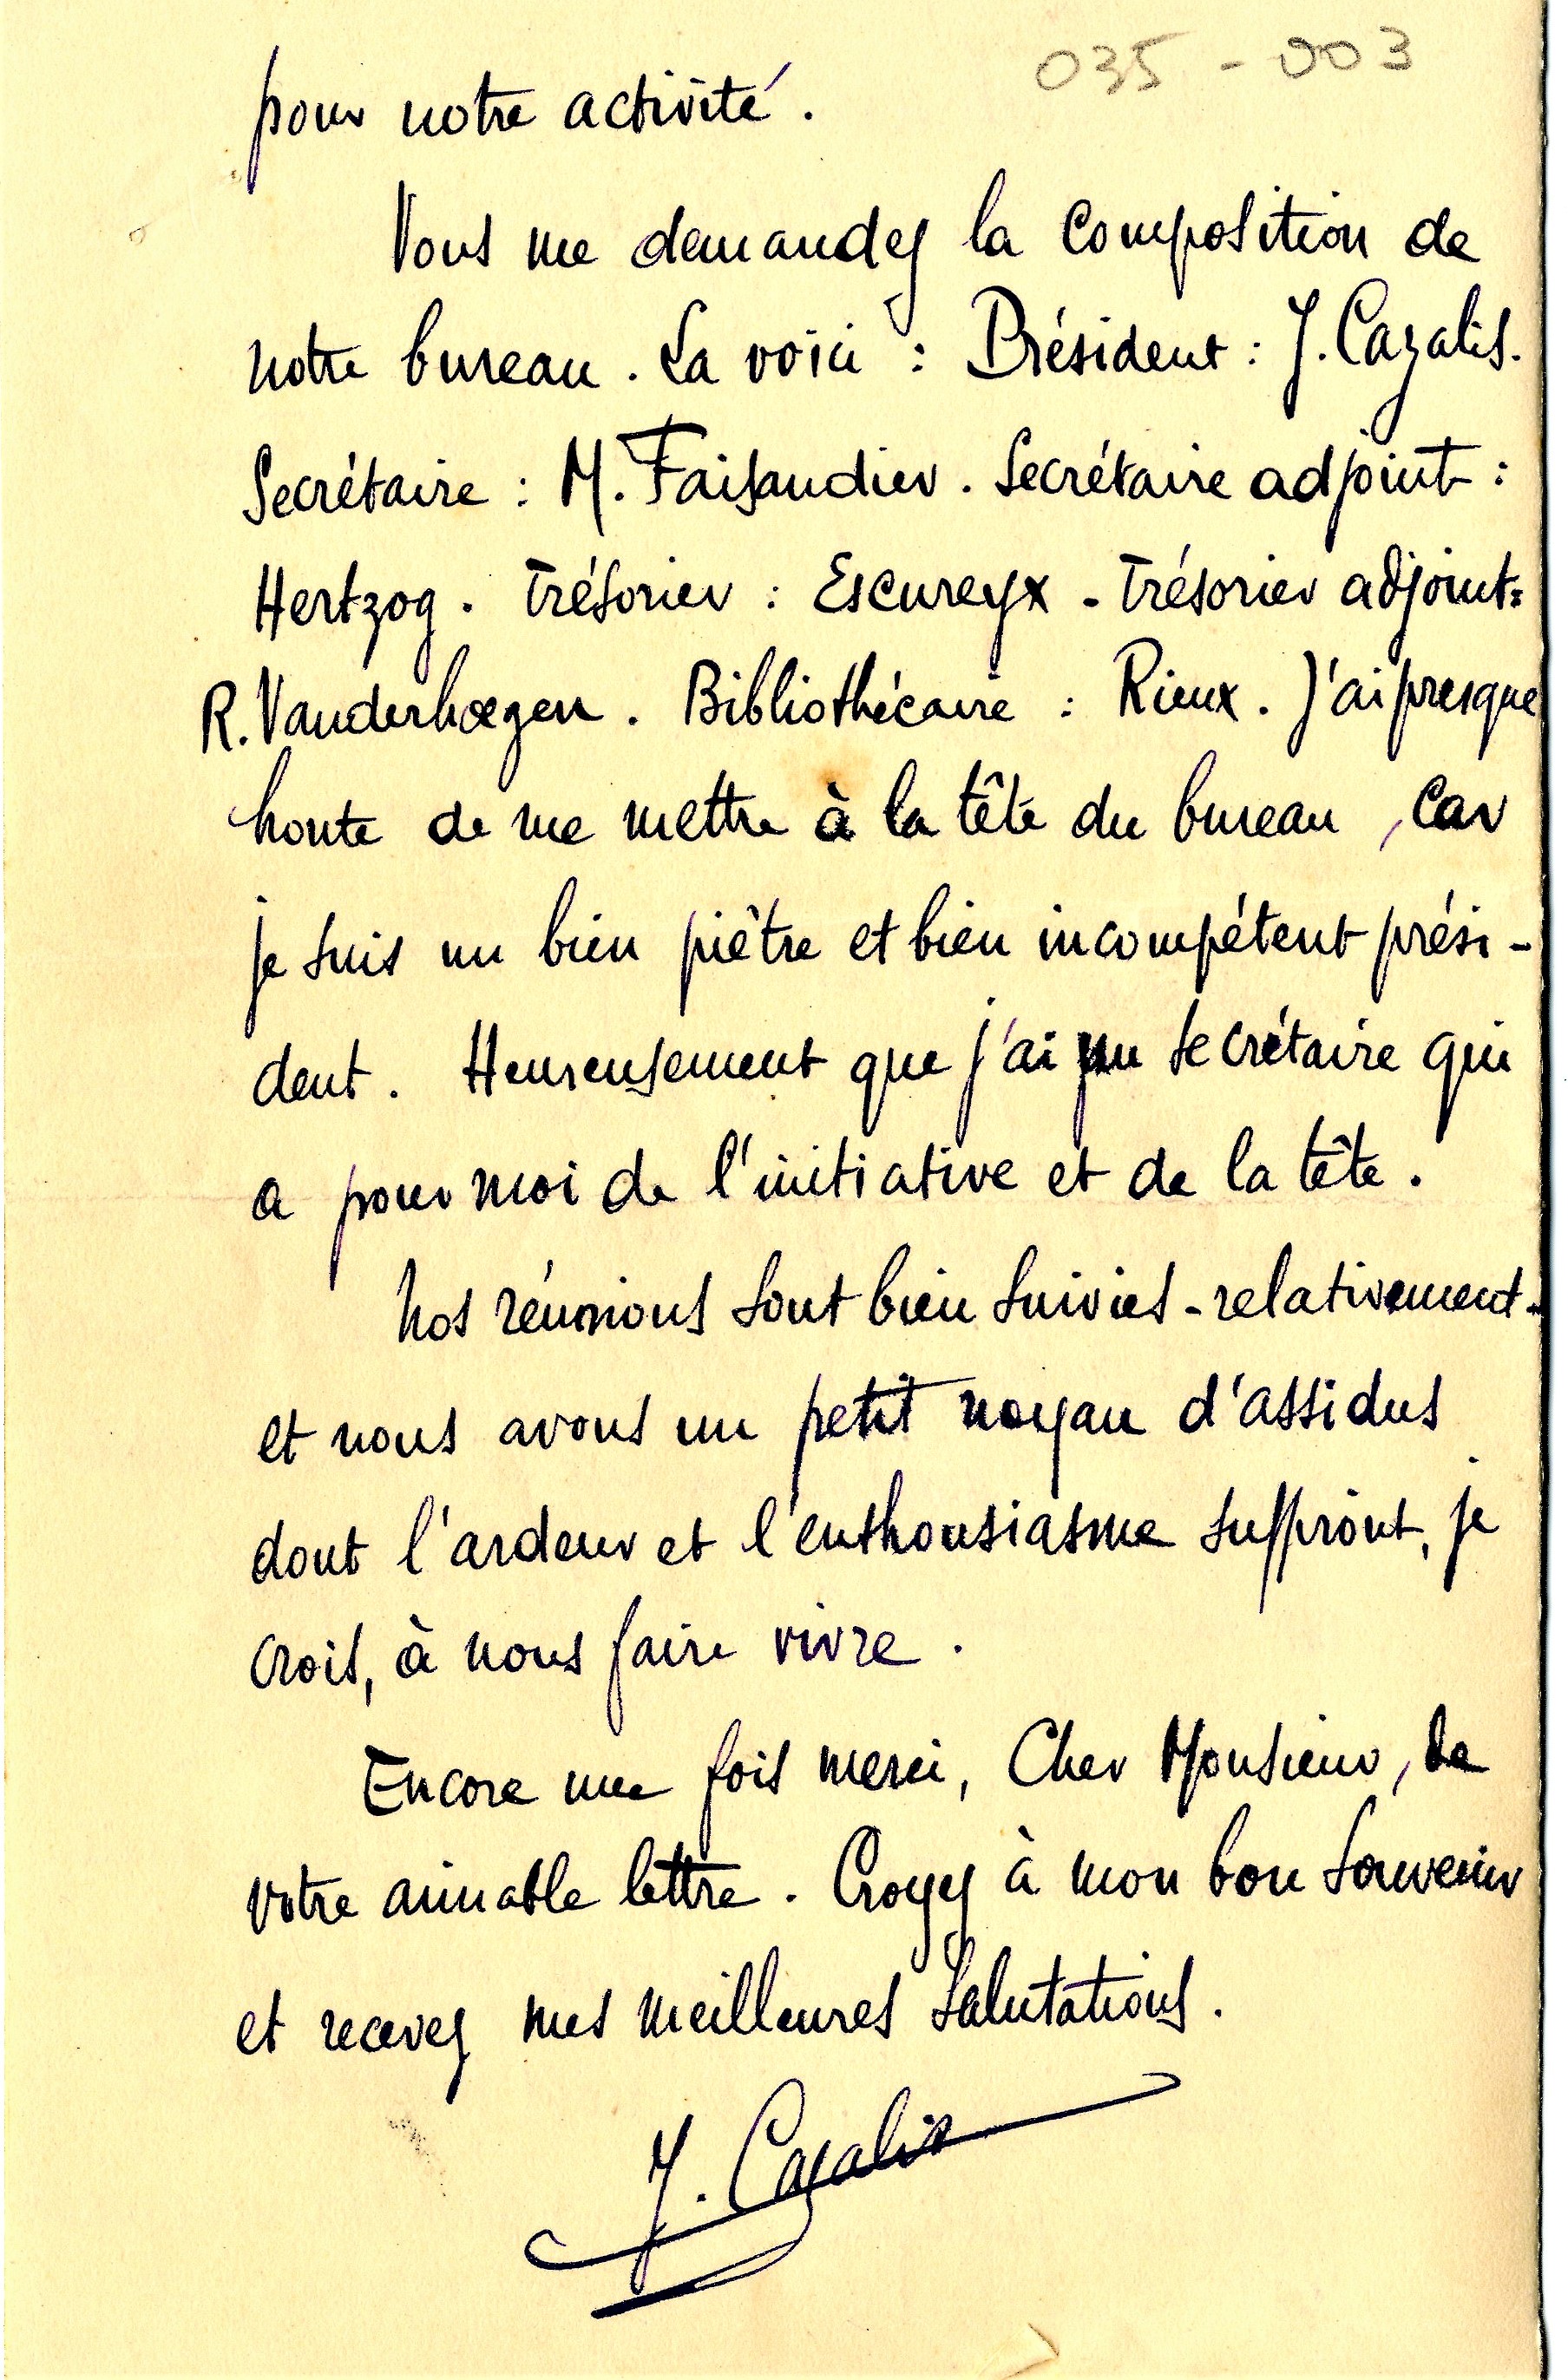 035 - 003
pour notre activité.
Vous me demandez la composition de
notre bureau. La voici : Président : J. Cazalis.
Secrétaire : M. Faisandier. Secrétaire adjoint :
Hertzog. Trésorier : Escureyx - Trésorier adjoint :
R. Vanderhœgen. Bibliothécaire : Rieux. J'ai presque
honte de me mettre à la tête du bureau, car
je suis un bien piètre et bien incompétent prési-
dent. Heureusement que j'ai un secrétaire qui
a pour moi de l'initiative et de la tête.
Nos réunions sont bien suivies - relativement -
et nous avons un petit noyau d'assidus
dont l'ardeur et l'enthousiasme suffiront, je
crois, à nous faire vivre.
Encore une fois merci, Cher Monsieur, de
votre aimable lettre. Croyez à mon bon souvenir
et recevez mes meilleures salutations.
J. Cazalis